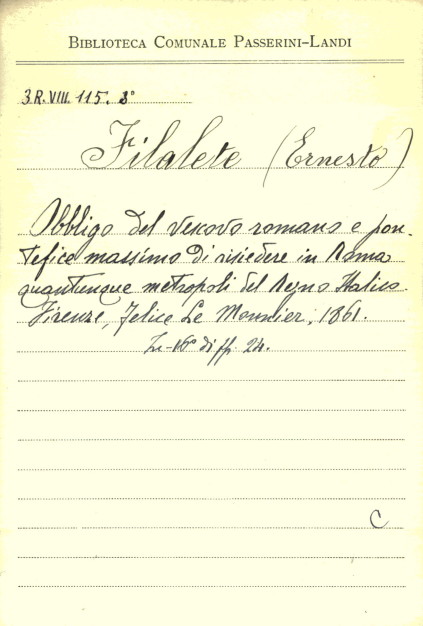 BIBLIOTECA COMUNALE PASSERINI-LANDI
3R.VIII.115.8°
Filalete (Ernesto)
Obbligo del vescovo romano e pon-
tefice massimo di risiedere in Roma
quantunque metropoli del Regno Italico.
Firenze, Felice Le Monnier, 1861.
In-16° di pp. 24.
C